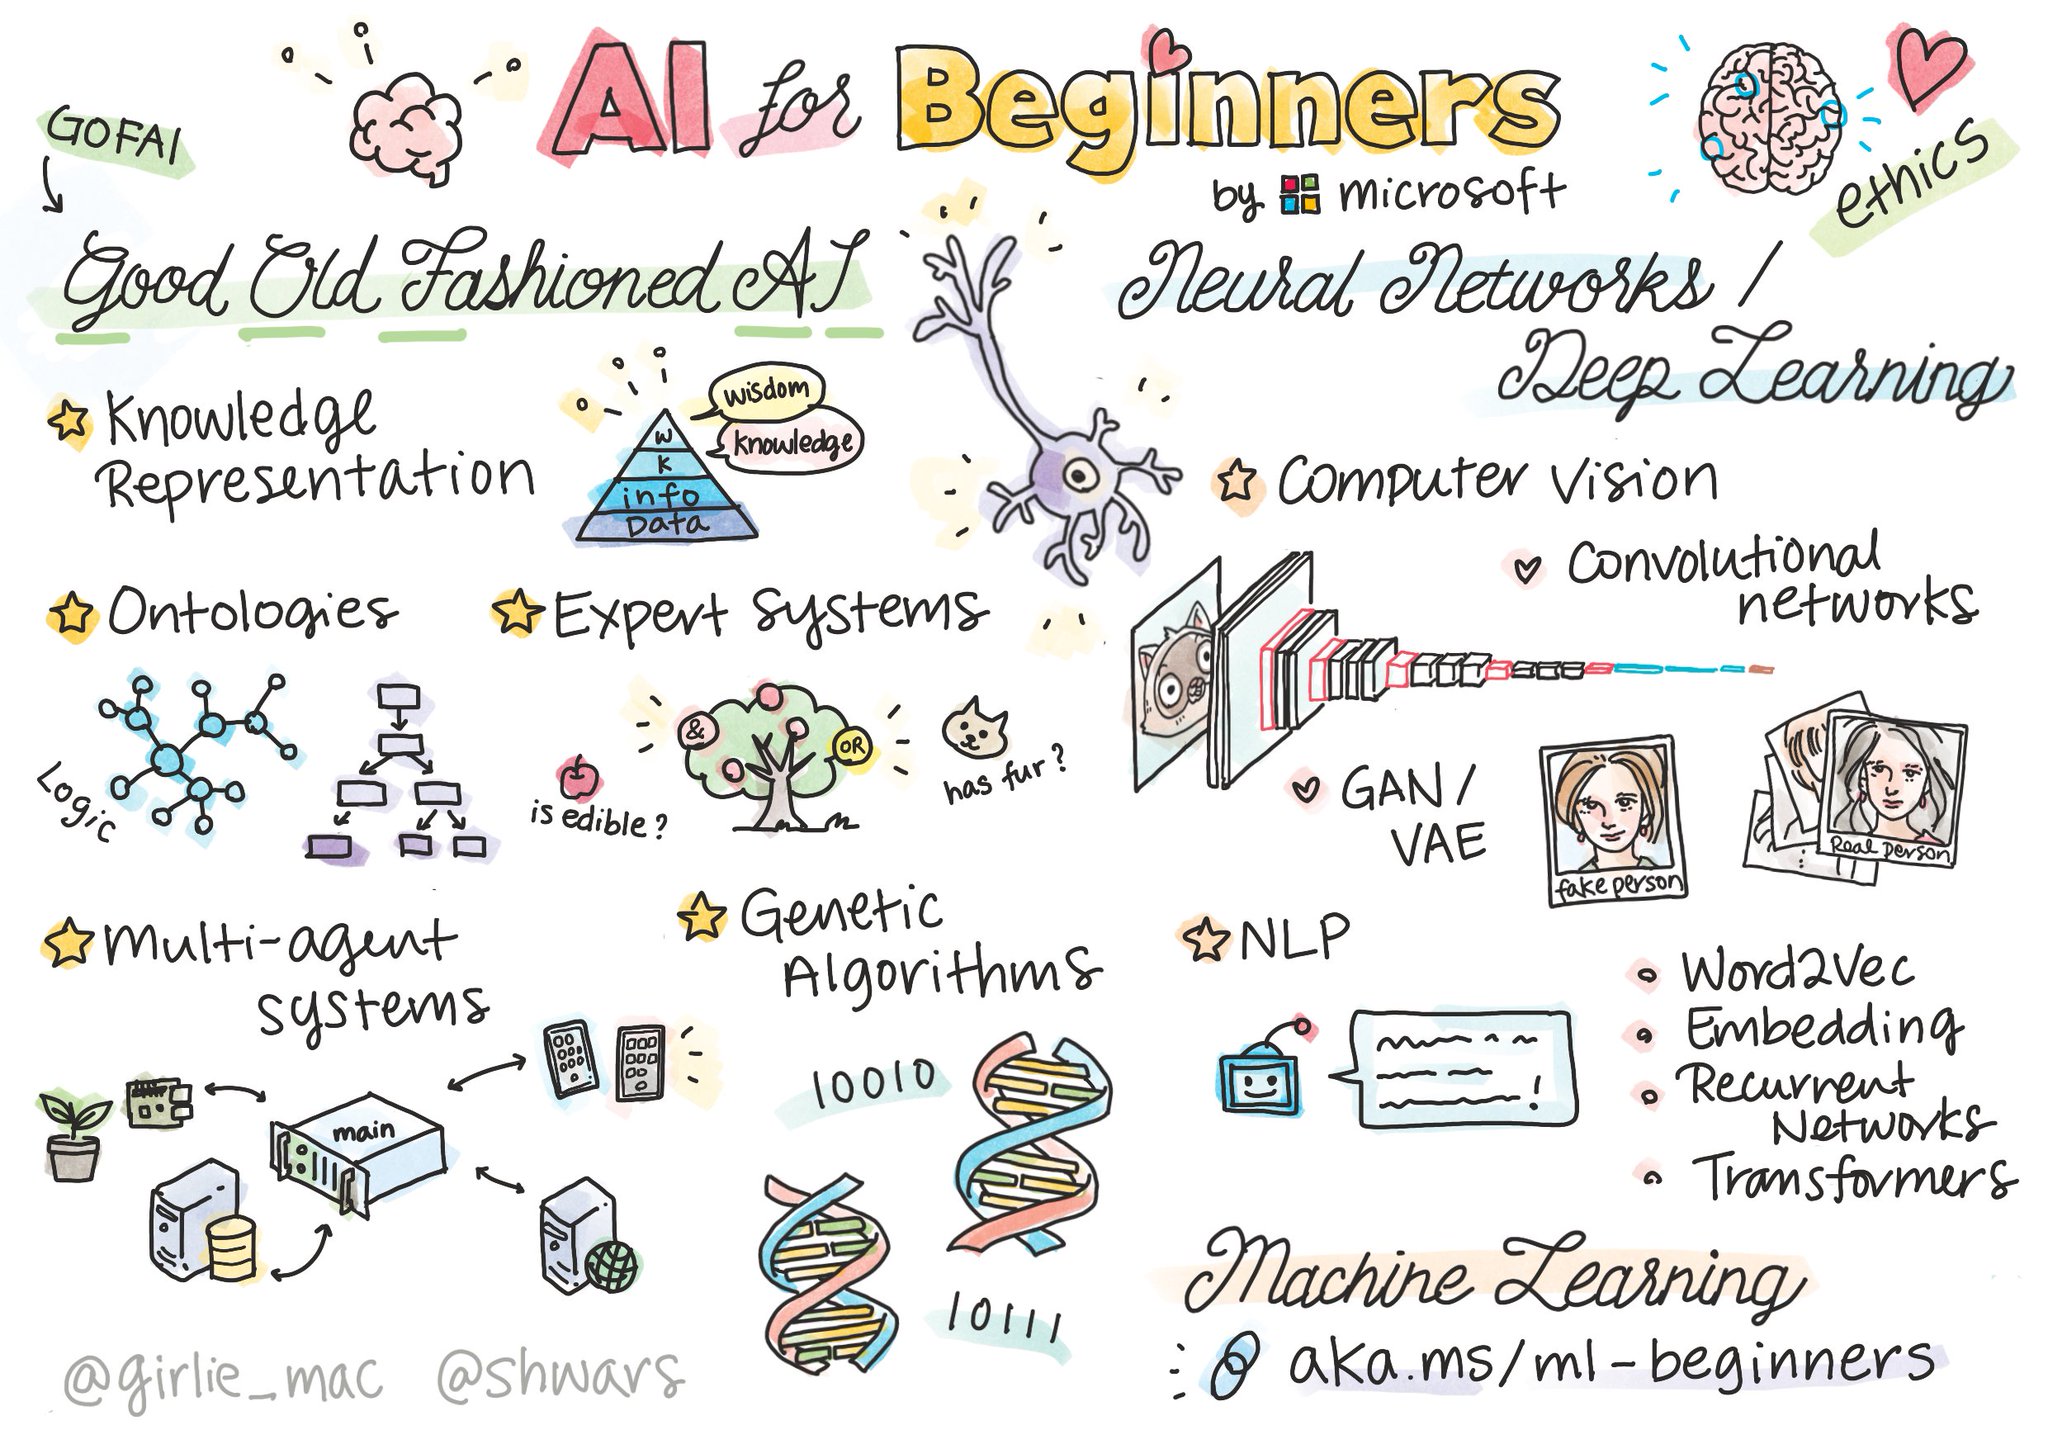 AI for Beginners
by microsoft
GOFAI
ethics
Good Old Fashioned AI
Knowledge
Representation
wisdom
knowledge
W
K
info
Data
Ontologies
Logic
Expert systems
&
OR
is edible?
has fur?
Multi-agent
systems
main
Genetic
Algorithms
10010
10111
Neural Networks /
Deep Learning
Computer vision
Convolutional
networks
GAN/
VAE
fake person
Real person
NLP
Word2Vec
Embedding
Recurrent
Networks
Transformers
Machine Learning
aka.ms/ml-beginners
@girlie_mac @shwars